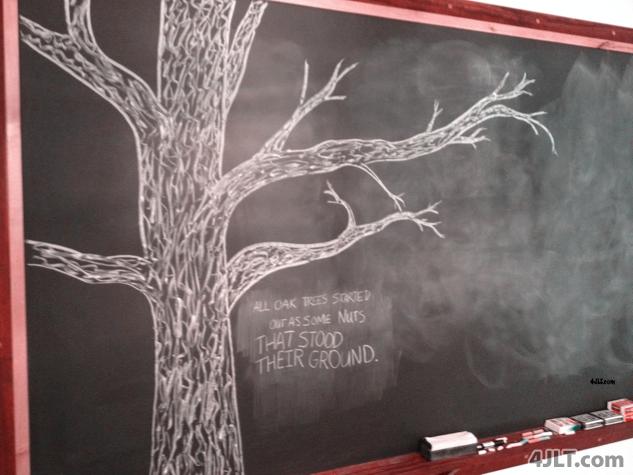 ALL OAK TREES STARTED
OUT AS SOME NUTS
THAT STOOD
THEIR GROUND.
4JLT.com
4JLT.com